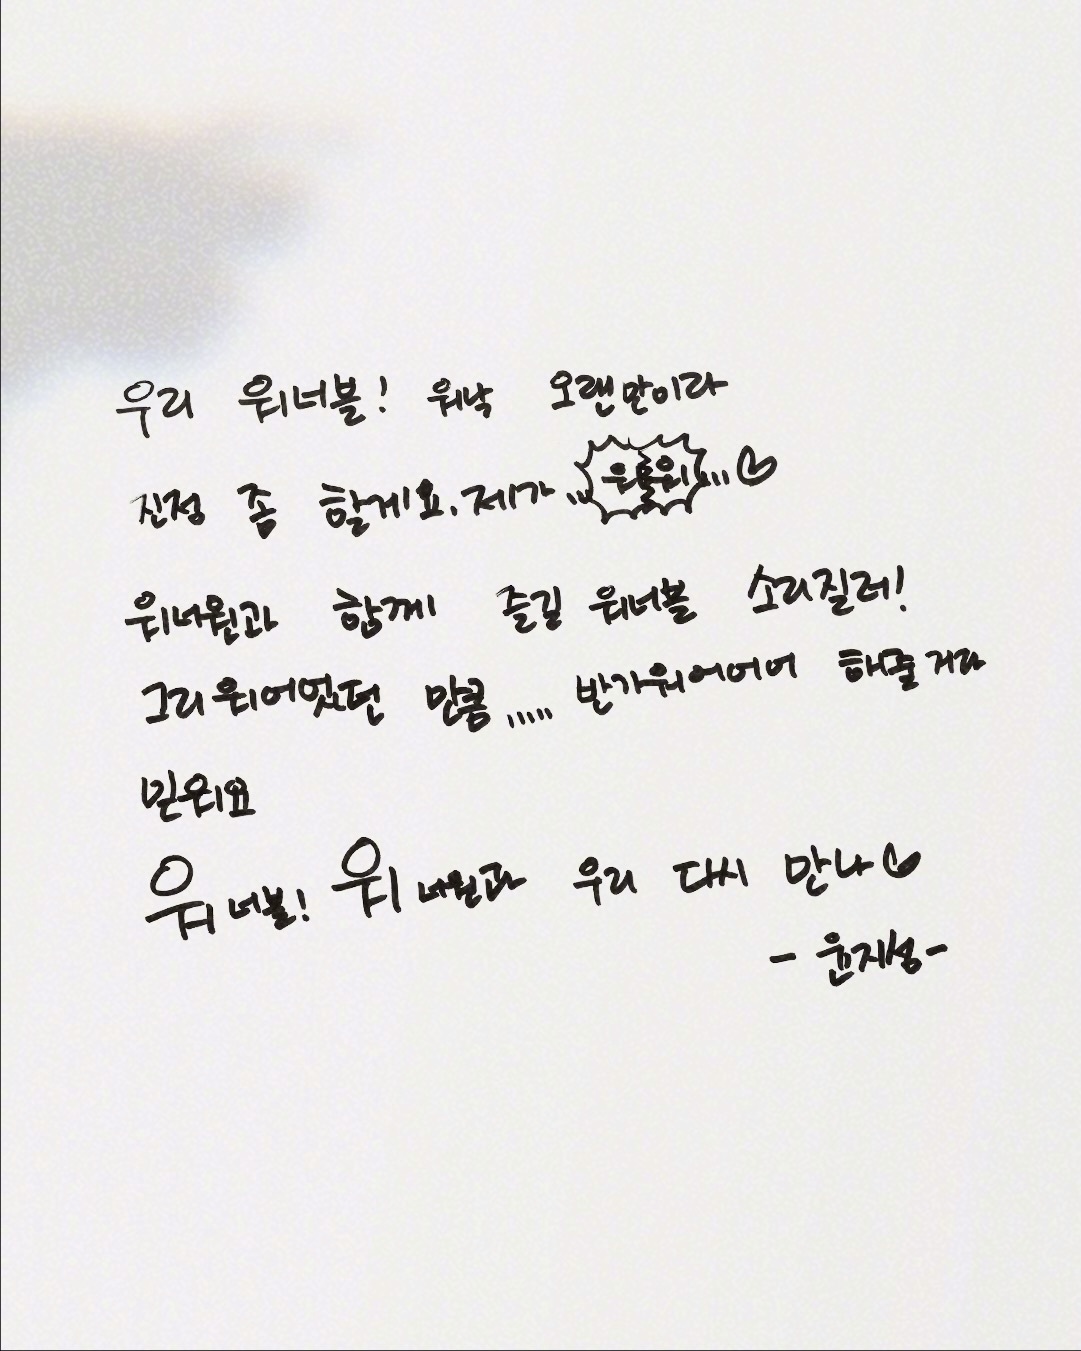 우리 워너블! 워낙 오랜만이라
진정 좀 할게요. 제가...
워너원과 함께 즐길 워너블 소리질러!
그리워어었던 만큼..... 반가워어어어 해줄거라
믿워요
워너블! 워너원과 우리 다시 만나♡
- 윤지성 -